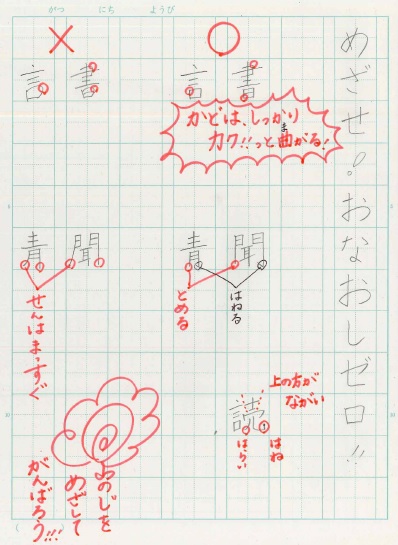 がつ にち ようび
めざせ!おなおしゼロ!!
○
言 書
かどは、しっかり
カク!!っと曲がる!
ま
青 聞
はねる
とめる
上の方が
ながい
読
はね
はらい
×
言 書
青 聞
せんはまっすぐ
のじを
めざして
がんばろう!!!